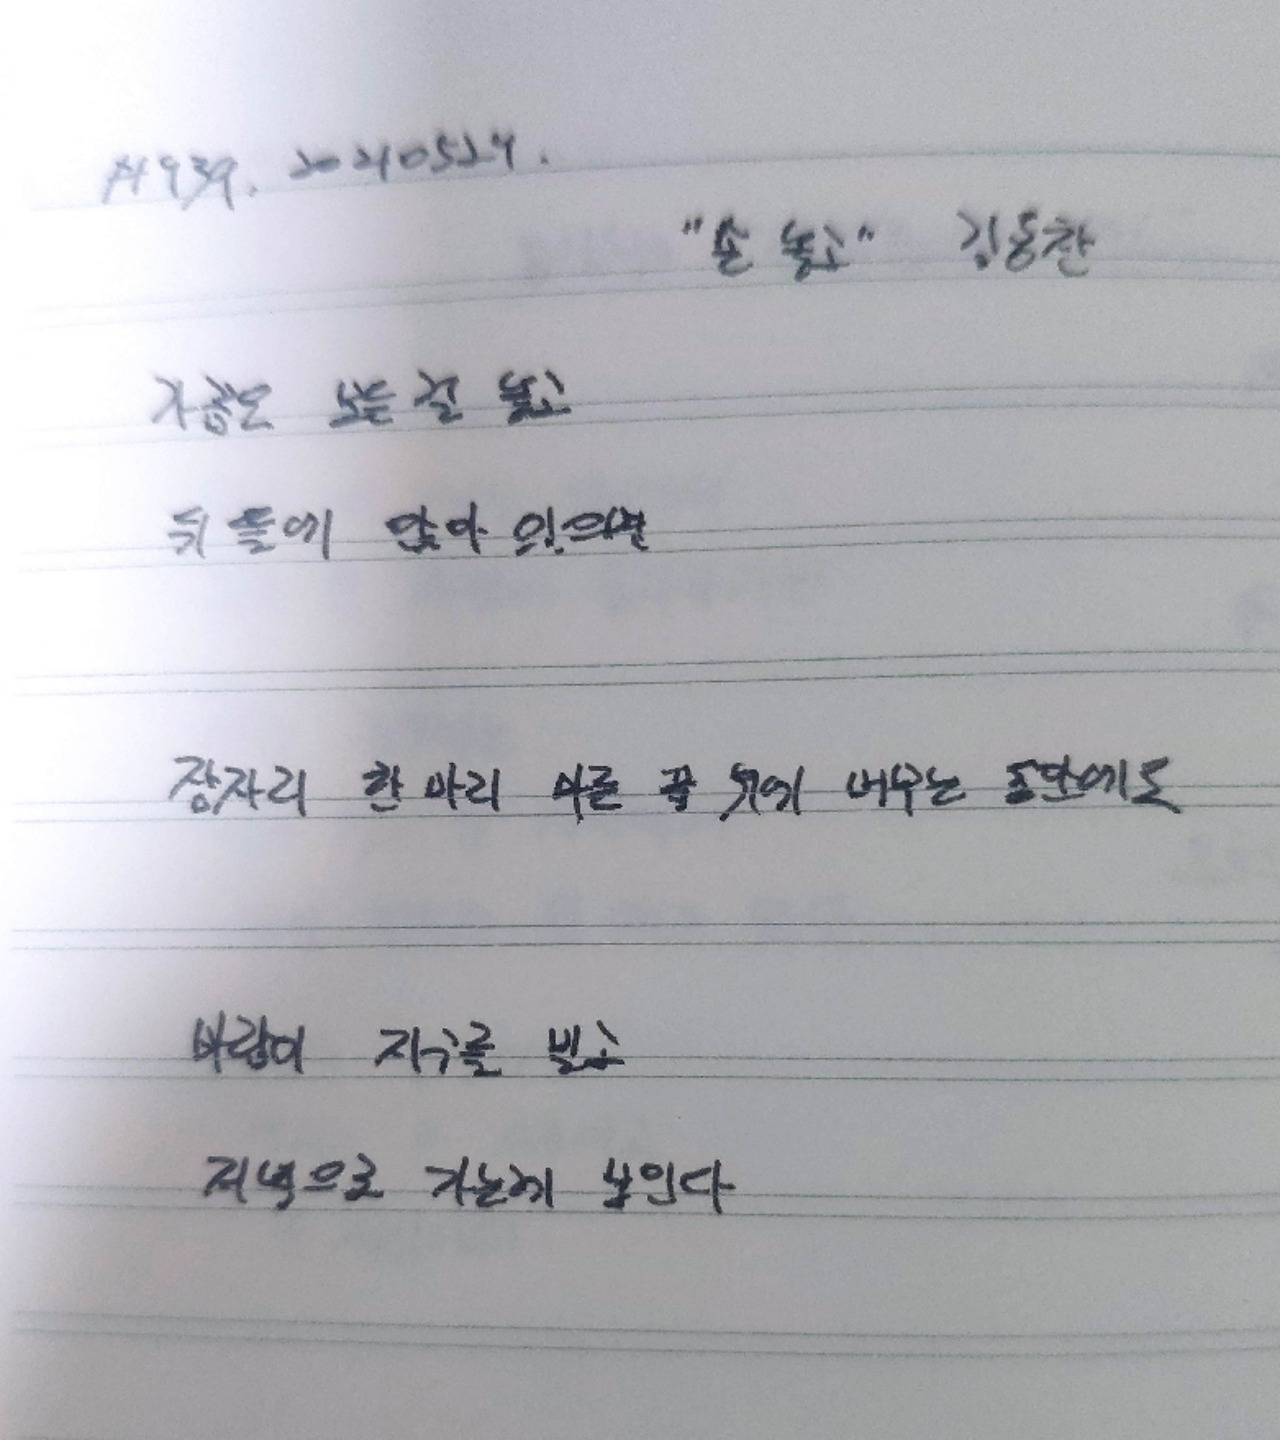 #939. 20210524.
"손 놓고" 김동찬
가끔은 모든 걸 놓고
뒤뜰에 앉아 있으면
잠자리 한 마리 마른 꽃 뒤에 머무는 동안에도
바람이 지구를 빌고
저녁으로 가는게 보인다